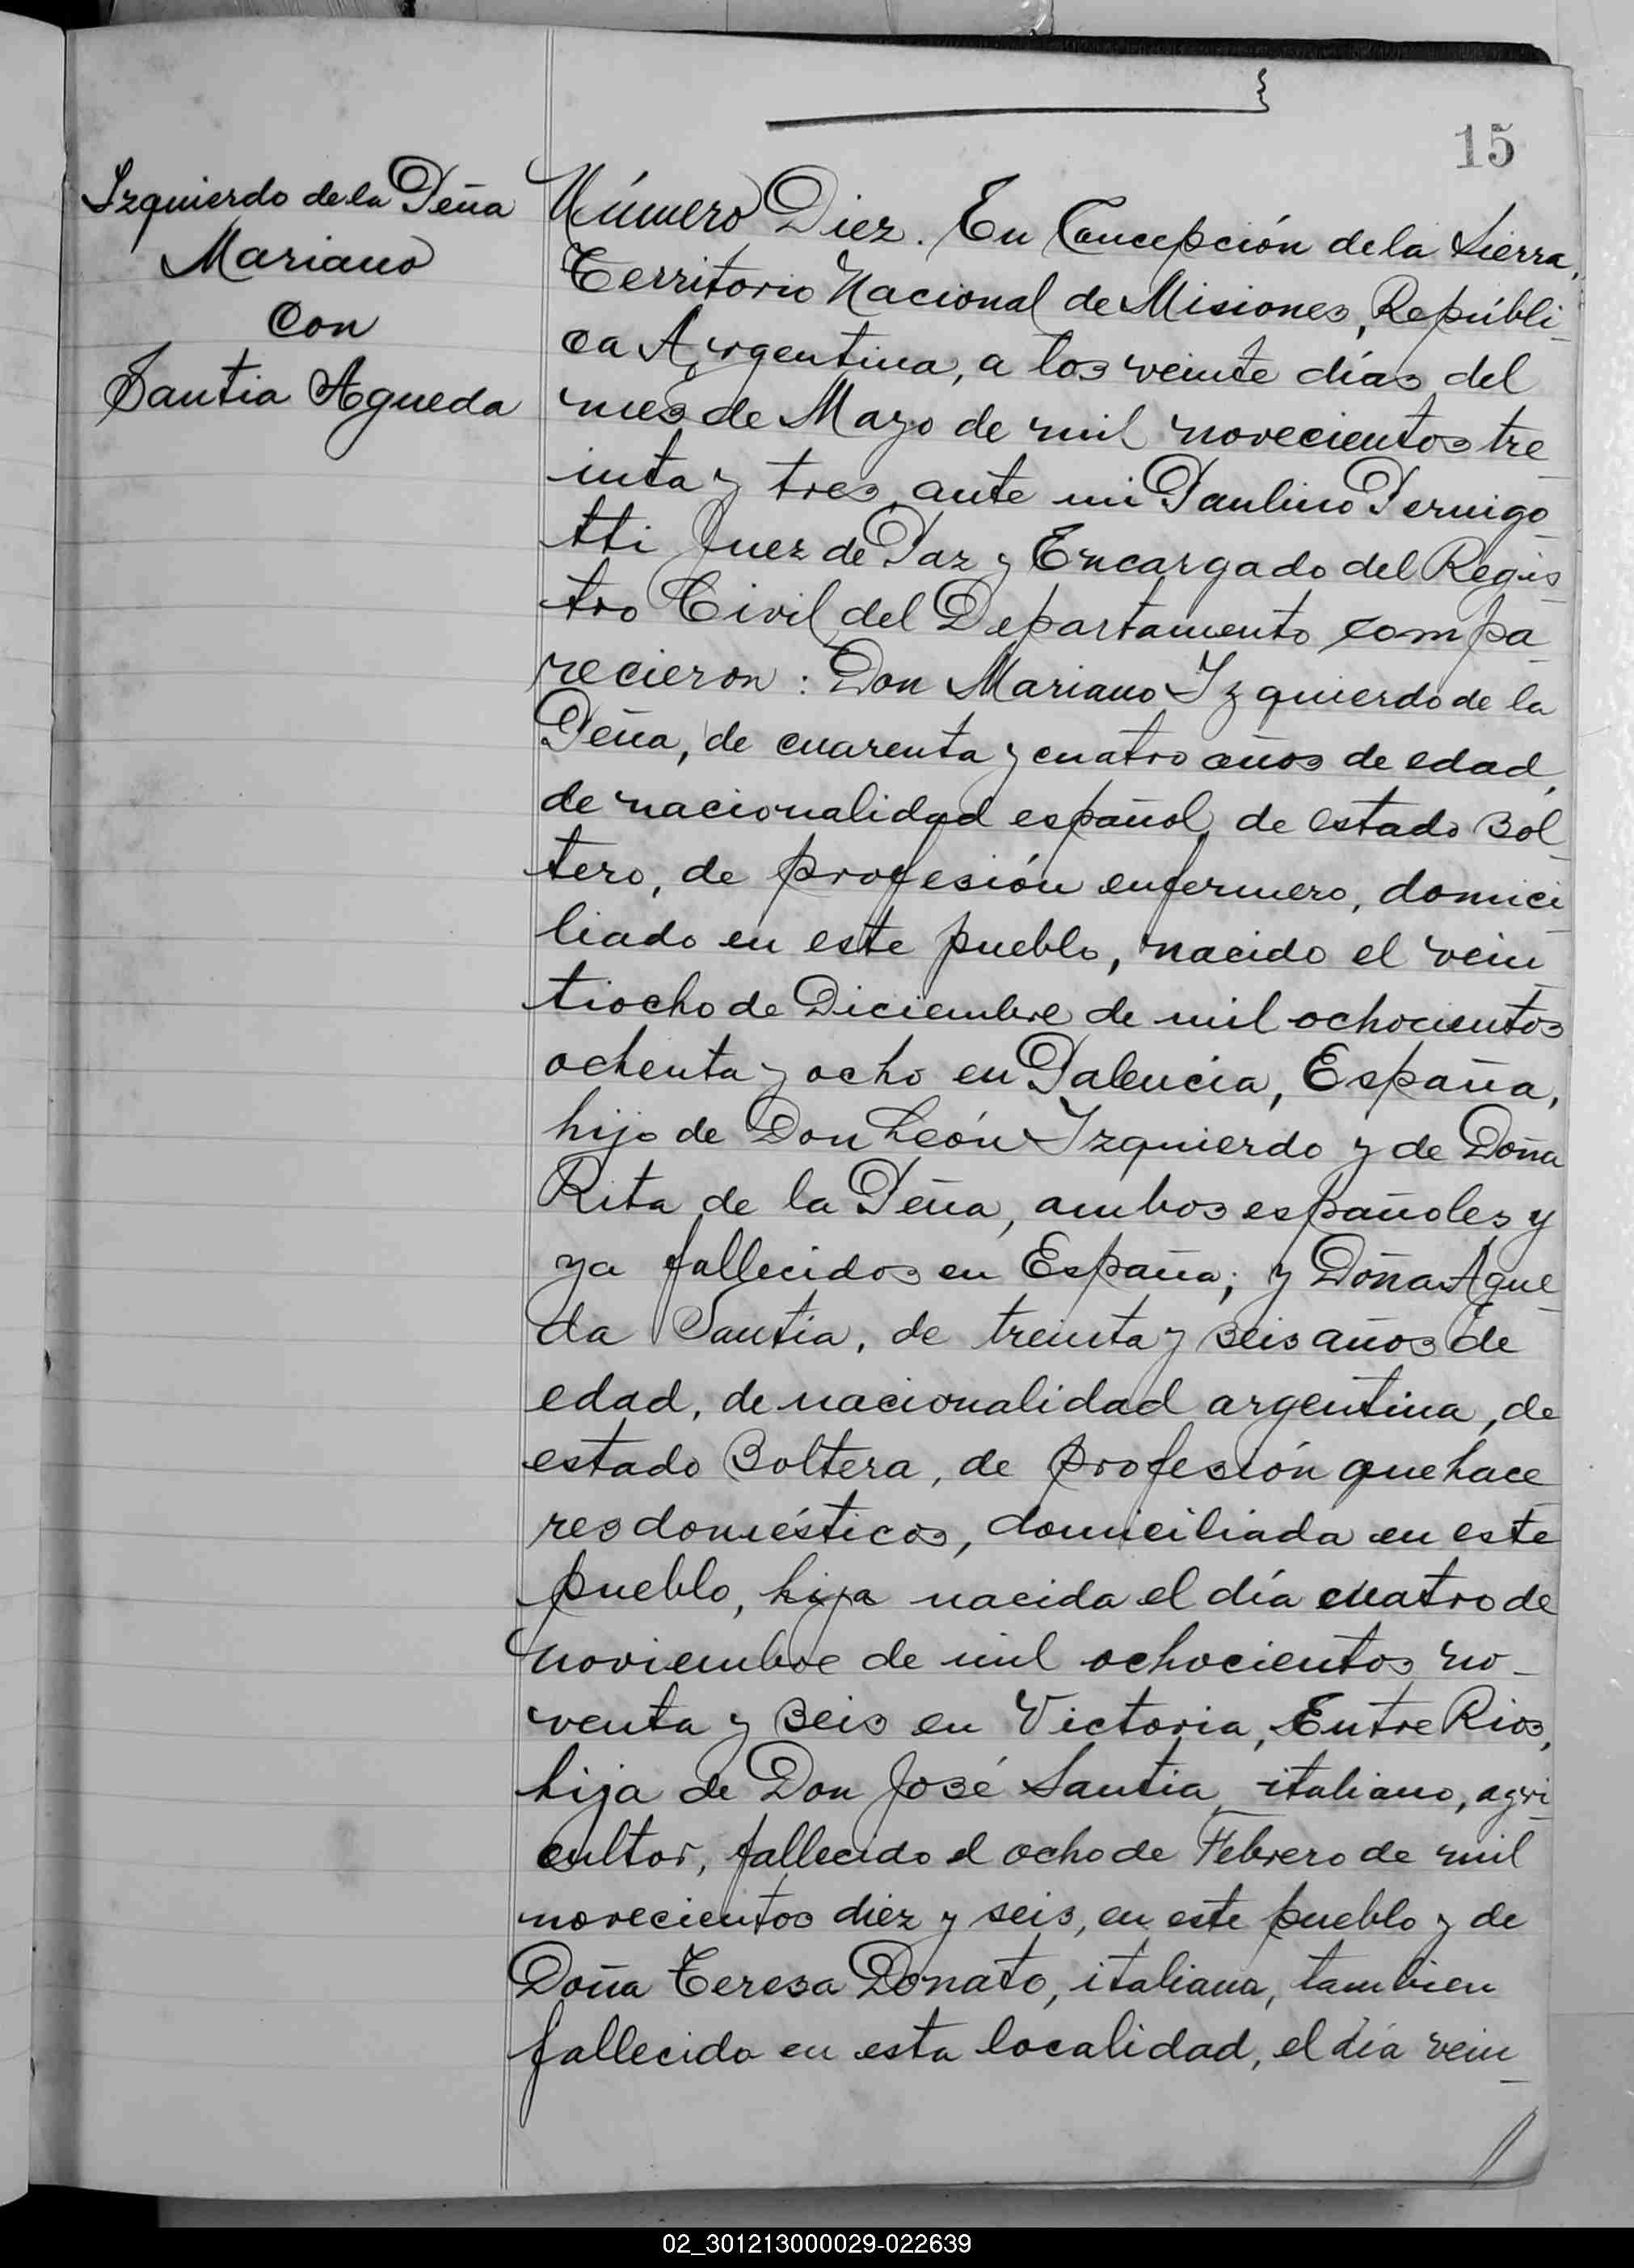 15
Izquierdo de la Peña
Mariano
Con
Santia Agueda
Número Diez. En Concepción de la Sierra,
Territorio Nacional de Misiones, Repúbli-
ca Argentina, a los veinte días del
mes de Mayo de mil novecientos tre-
inta y tres, ante mi Paulino Pernigo-
tti Juez de Paz y Encargado del Regis-
tro Civil del Departamento compa-
recieron: Don Mariano Izquierdo de la
Peña, de cuarenta y cuatro años de edad,
de nacionalidad español, de estado sol-
tero, de profesión enfermero, domici-
liado en este pueblo, nacido el vein-
tiocho de Diciembre de mil ochocientos
ochenta y ocho en Palencia, España,
hijo de Don León Izquierdo y de Doña
Rita de la Peña, ambos españoles y
ya fallecidos en España; y Doña Ague-
da Santia, de treinta y seis años de
edad, de nacionalidad argentina, de
estado soltera, de profesión quehace-
res domésticos, domiciliada en este
pueblo, hija nacida el día cuatro de
noviembre de mil ochocientos no-
venta y seis en Victoria, Entre Rios,
hija de Don José Santia, italiano, agri-
cultor, fallecido el ocho de Febrero de mil
novecientos diez y seis, en este pueblo y de
Doña Teresa Donato, italiana, tambien
fallecida en esta localidad, el día vein-
02_301213000029-022639